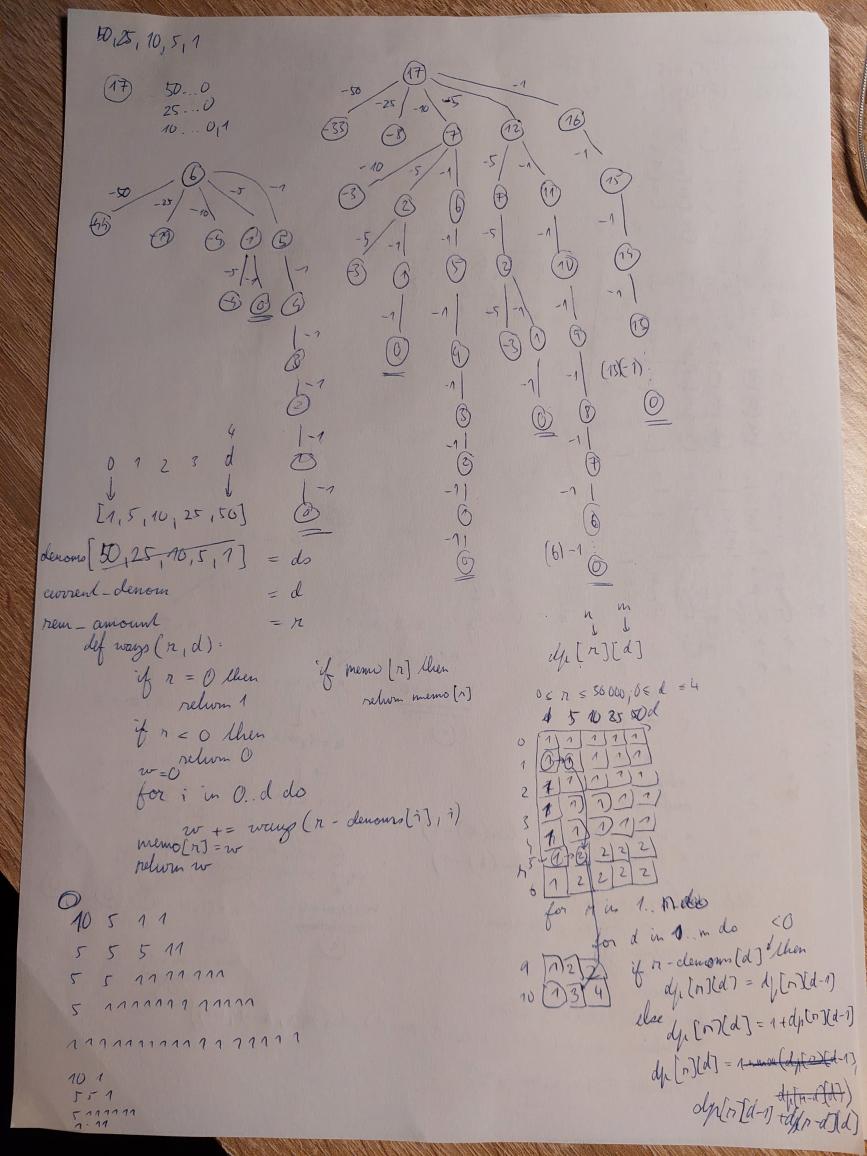 50, 25, 10, 5, 1
17
50...0
25...0
10....0,1
17
-50 -25 -10 -5 -1
-33 -8 7 12 16
-10 -5 -1 -5 -1 -1
-3 2 6 7 11 15
-5 -1 -1 -5 -1 -1
-3 1 5 2 10 14
-1 -1 -5 -1 -1 -1
0 4 -3 1 9 13
-1 -1 -1 (13)(-1)
3 0 8 0
-1 -1
2 7
-1 -1
1 6
-1 (6)-1
0 0
6
-50 -25 -10 -5 -1
-44 -19 -4 1 5
-5 -1 -1
-4 0 4
-1
3
-1
2
-1
-1
0
4
0 1 2 3 d
[1, 5, 10, 25, 50]
denoms[50, 25, 10, 5, 1] = ds
current_denom = d
rem_amount = r
def ways(r, d):
if r = 0 then
return 1
if r < 0 then
return 0
w=0
for i in 0..d do
w += ways(r - denoms[i], i)
memo[r]=w
return w
if memo[r] then
return memo[r]
n m
dp[r][d]
0 ≤ r ≤ 50000, 0 ≤ d ≤ 4
1 5 10 25 50 d
0 1 1 1 1 1
1 1 1 1 1 1
2 1 1 1 1 1
3 1 1 1 1 1
4 1 1 1 1 1
5 1 2 2 2 2
6 1 2 2 2 2
9 1 2 2
10 1 3 4
for r in 1..n do
for d in 1..m do
if r-denoms[d] <0 then
dp[r][d] = dp[r][d-1]
else
dp[r][d] = 1+dp[r][d-1]
dp[r][d] =
dp[r-d][d])
dp[r][d-1] + dp[r-d][d]
10 5 1 1
5 5 5 1 1
5 5 1 1 1 1 1 1 1
5 1 1 1 1 1 1 1 1 1 1 1 1
1 1 1 1 1 1 1 1 1 1 1 1 1 1 1 1 1
10 1
5 5 1
5 1 1 1 1 1 1